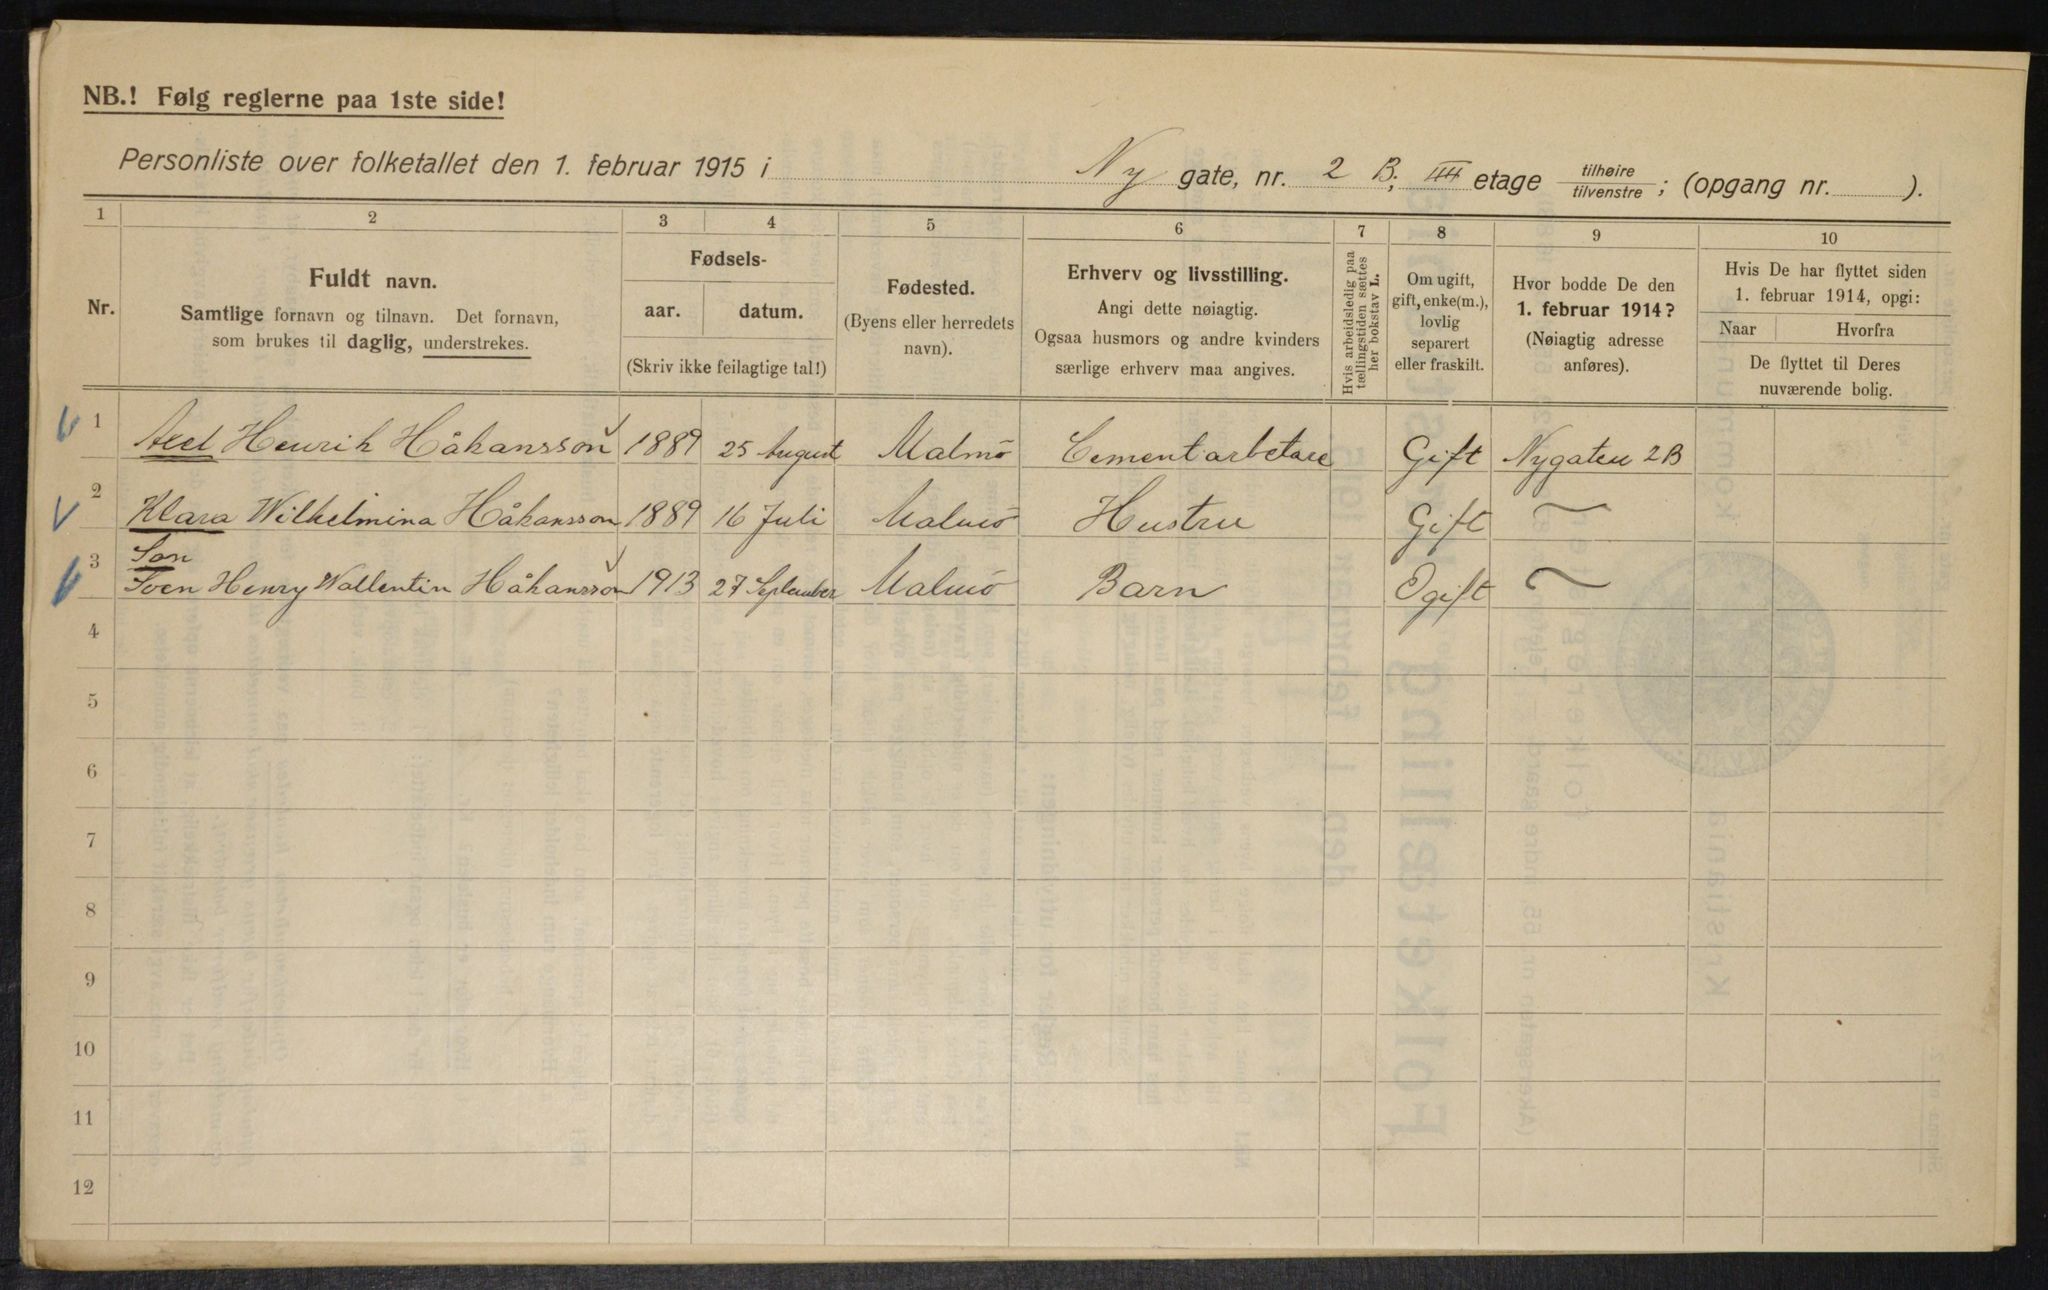 NB.! Følg reglerne paa 1ste side!
Personliste over folketallet den 1. februar 1915 i Ny gate, nr. 2 B; III etage tilhøire/tilvenstre; (opgang nr. ).
1 2 3 4 5 6 7 8 9 10
Nr.
Fuldt navn.
Samtlige fornavn og tilnavn. Det fornavn,
som brukes til daglig, understrekes.
Fødsels-
aar. datum.
(Skriv ikke feilagtige tal!)
Fødested.
(Byens eller herredets
navn).
Erhverv og livsstilling.
Angi dette nøiagtig.
Ogsaa husmors og andre kvinders
særlige erhverv maa angives.
Hvis arbeidsledig paa
tællingstiden sættes
her bokstav L.
Om ugift,
gift, enke(m.),
lovlig
separert
eller fraskilt.
Hvor bodde De den
1. februar 1914?
(Nøiagtig adresse
anføres).
Hvis De har flyttet siden
1. februar 1914, opgi:
Naar Hvorfra
De flyttet til Deres
nuværende bolig.
1 Axel Henrik Håkansson 1889 25 August Malmö Cementarbetare Gift Nygaten 2B
2 Klara Wilhelmina Håkansson 1889 16 Juli Malmö Hustru Gift ~
3 Son
Sven Henry Wallentin Håkansson 1913 27 September Malmö Barn Ogift ~
4
5
6
7
8
9
10
11
12